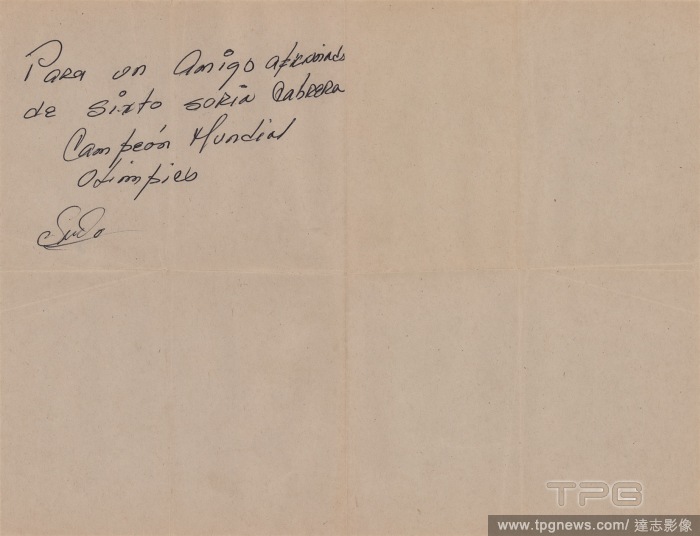 Para un Amigo
de Sixto Soria Cabrera
Campeón Mundial
Olimpico
Sixto
TPG
www.tpgnews.com/ 達志影像